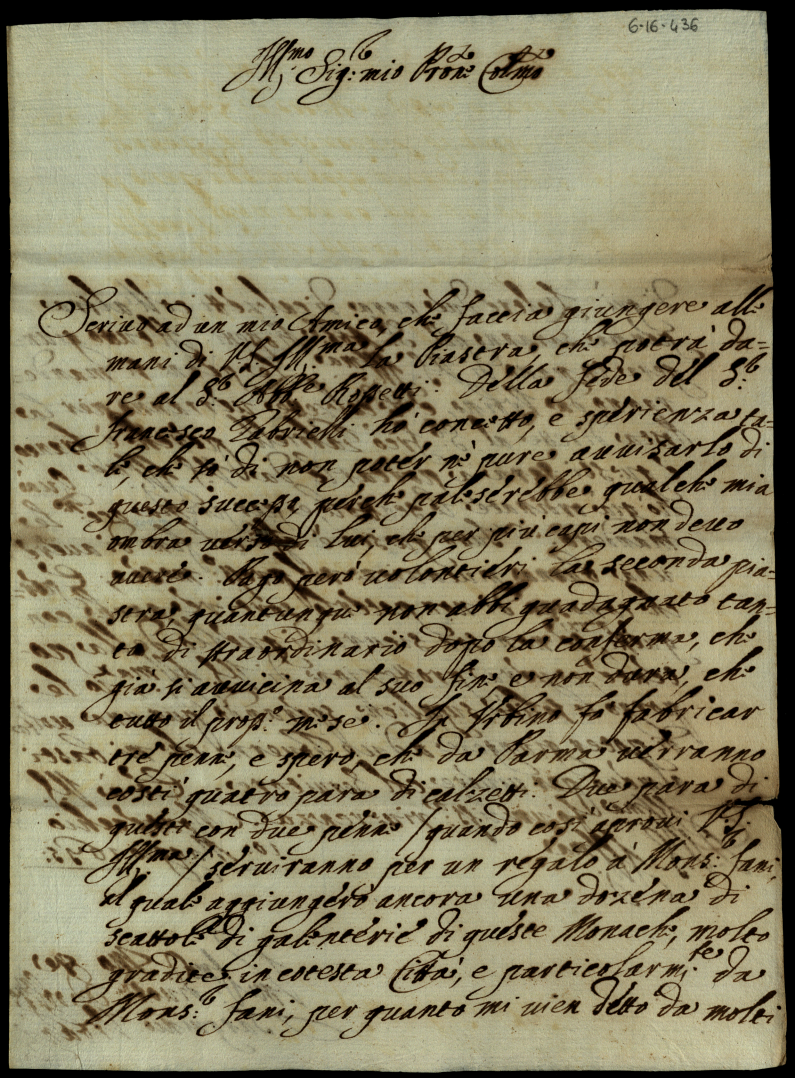 6-16-436
Ill.mo Sig.r mio Pron.e Colmo
Scrivo ad un mio Amico, che faccia giungere alle
mani di VS. Ill.ma la Piastra, che potrà da-
re al S.r Abb.e Rossetti. Della fede del S.r
Francesco Gabrielli hò concetto, e sperienza ta-
le, che sò di non potér nè pure avvisarlo di
questo successo, perche paleserebbe qualche mia
ombra verso di lui, che per più capi non devo
avere. Pago però volontieri la seconda pia-
stra, quantunque non abbi guadagnato tan-
to di straordinario dopo la conferma, che
già si avvicina al suo fine e non dura, che
tutto il prop.o mese. In Urbino fò fabricar
tre penne, e spero, che da Parma verranno
costì quatro para di calzetti. Due para di
questi con due penne / quando così aprovi VS.
Ill.ma / serviranno per un regalo à Mons.r Fani,
al quale aggiungerò ancora una dozena di
scattole di galenterie di queste Monache, molto
gradite in cotesta Città, e particolarm.te da
Mons.r Fani, per quanto mi vien detto da molti